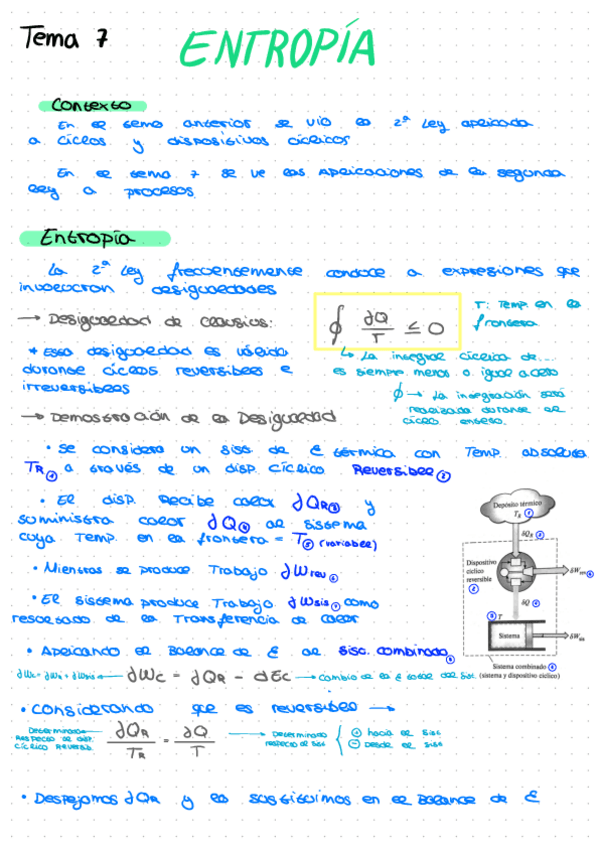 Tema 7
ENTROPÍA
Contexto
En el tema anterior se vio la 2ª Ley aplicada
a ciclos y dispositivos cíclicos
En el tema 7 se ve las Aplicaciones de la segunda
ley a procesos.
Entropía
La 2ª Ley frecuentemente conduce a expresiones que
involucran desigualdades
→ Desigualdad de Clausius:
∮ ∂Q/T ≤ 0
T: Temp. en la
frontera
* Esta desigualdad es válida
durante ciclos reversibles e
irreversibles
↳ La integral cíclica de...
es siempre menor o igual a cero
∮ → La integración será
realizada durante el
ciclo entero.
→ Demostración de la Desigualdad
• Se considera un sist de E térmica con Temp absoluta
TR ① a través de un disp. Cíclico Reversible ②
• El disp. Recibe calor ∂QR ③ y
suministra calor ∂Q ④ al sistema
cuya Temp. en la frontera = T ⑤ (variable)
• Mientras se produce Trabajo ∂Wrev ⑥
• El sistema produce Trabajo ∂Wsis ⑦ como
resultado de la Transferencia de calor
• Aplicando el Balance de E al Sist. combinado ⑧
∂Wc = ∂QR - dEc → cambio de la E total del Sist.
• Considerando que es reversible →
Determinado
respecto al disp.
cíclico reversib.
∂QR/TR = ∂Q/T
→ Determinado
respecto al sist
⊕ hacia el sist
⊖ Desde el sist
• Despejamos ∂QR y la sustituimos en el Balance de E
Depósito térmico
TR
δQR
Dispositivo
cíclico
reversible
δWrev
δQ
T
Sistema
δWsis
Sistema combinado
(sistema y dispositivo cíclico)